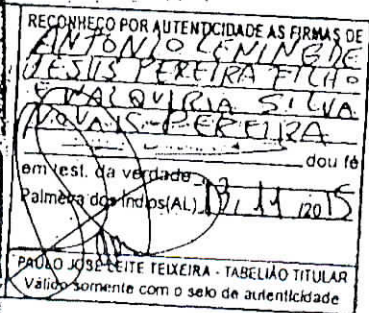 RECONHEÇO POR AUTENTICIDADE AS FIRMAS DE
ANTÔNIO LENING DE
JESUS PEREIRA FILHO
E WALQUIRIA SILVA
NOVAIS PEREIRA
dou fé
em test. da verdade
Palmeira dos Índios(AL) 13, 11 /2015
PAULO JOSÉ LEITE TEIXEIRA - TABELIÃO TITULAR
Válido somente com o selo de autenticidade